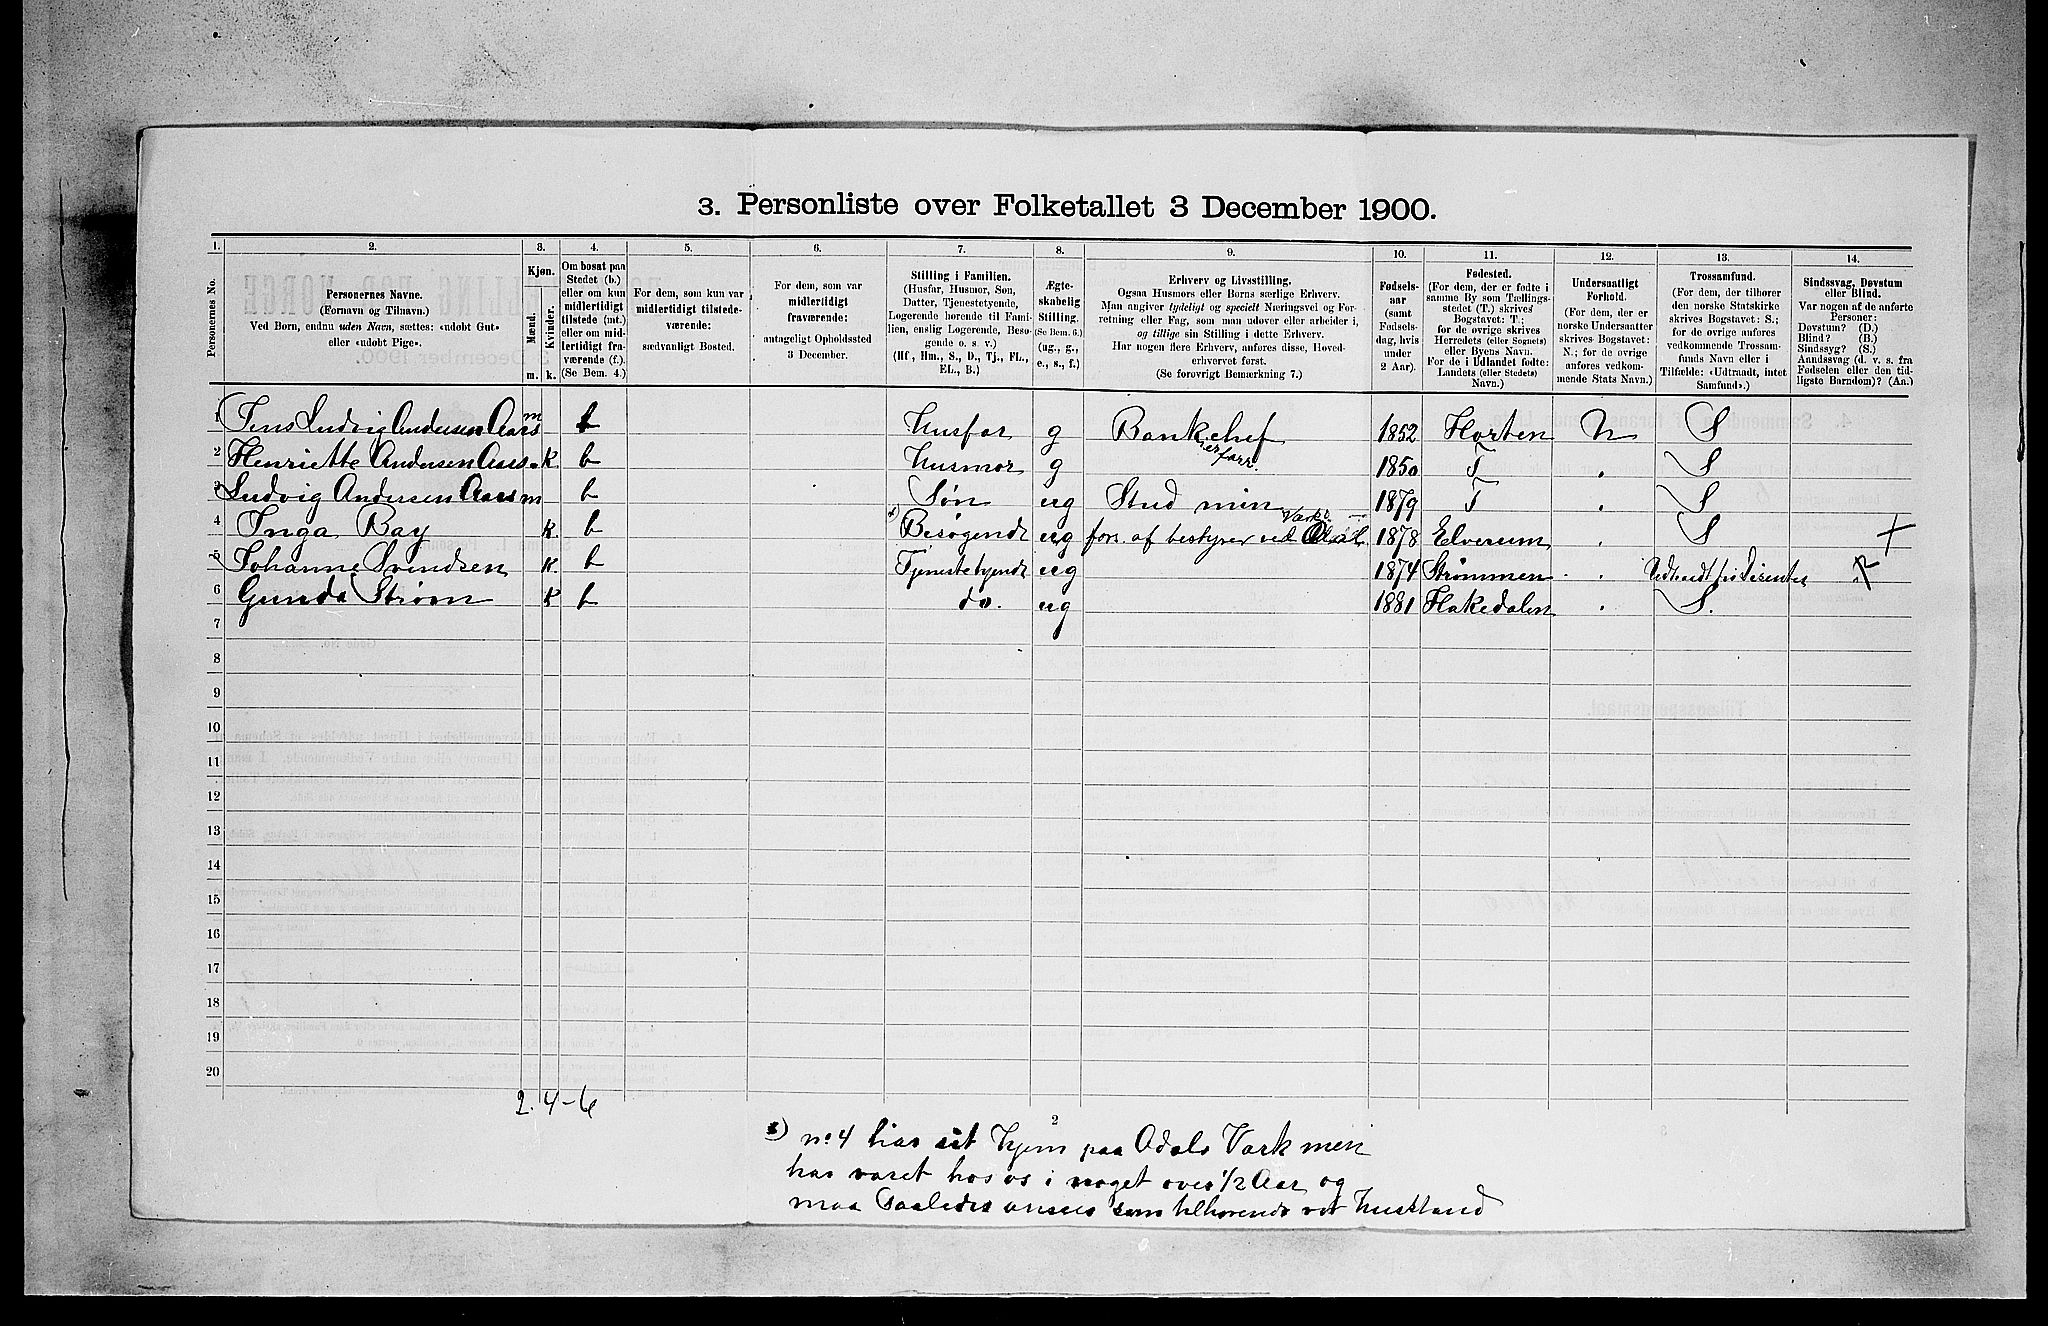 3. Personliste over Folketallet 3 December 1900.
1. 2. 3. 4. 5. 6. 7. 8. 9. 10. 11. 12. 13. 14.
Personernes No.
Personernes Navne.
(Fornavn og Tilnavn.)
Ved Børn, endnu uden Navn, sættes: «udøbt Gut»
eller «udøbt Pige».
Kjøn.
Mænd.
Kvinder.
m. k.
Om bosat paa
Stedet (b.)
eller om kun
midlertidigt
tilstede (mt.)
eller om mid-
lertidigt fra-
værende (f.).
(Se Bem. 4.)
For dem, som kun var
midlertidigt tilstede-
værende:
sædvanligt Bosted.
For dem, som var
midlertidigt
fraværende:
antageligt Opholdssted
3 December.
Stilling i Familien.
(Husfar, Husmor, Søn,
Datter, Tjenestetyende,
Logerende hørende til Fami-
lien, enslig Logerende, Besø-
gende o. s. v.)
(Hf., Hm., S., D., Tj., FL.,
EL., B.)
Ægte-
skabelig
Stilling.
(Se Bem. 6.)
(ug., g.,
e., s., f.)
Erhverv og Livsstilling.
Ogsaa Husmors eller Børns særlige Erhverv.
Man angiver tydeligt og specielt Næringsvei og For-
retning eller Fag, som man udøver eller arbeider i,
og tillige sin Stilling i dette Erhverv.
Har nogen flere Erhverv, anføres disse, Hoved-
erhvervet først.
(Se forøvrigt Bemærkning 7.)
Fødsels-
aar
(samt
Fødsels-
dag, hvis
under
2 Aar).
Fødested.
(For dem, der er fødte i
samme By som Tællings-
stedet (T.) skrives
Bogstavet: T.;
for de øvrige skrives
Herredets (eller Sognets)
eller Byens Navn.
For de i Udlandet fødte:
Landets (eller Stedets)
Navn.)
Undersaatligt
Forhold.
(For dem, der er
norske Undersaatter
skrives Bogstavet:
N.; for de øvrige
anføres vedkom-
mende Stats Navn.)
Trossamfund.
(For dem, der tilhører
den norske Statskirke
skrives Bogstavet: S.;
for de øvrige anføres
vedkommende Trossam-
funds Navn eller i
Tilfælde: «Udtraadt, intet
Samfund».)
Sindssvag, Døvstum
eller Blind.
Var nogen af de anførte
Personer:
Døvstum? (D.)
Blind? (B.)
Sindssyg? (S.)
Aandssvag (d. v. s. fra
Fødselen eller den tid-
ligste Barndom)? (Aa.)
1 Jens Ludvig Andersen Aars m b Husfar g Bankchef 1852 Horten N S
2 Henriette Andersen Aars k. b Husmor g 1850 T . S
3 Ludvig Andersen Aars m b Søn ug Stud min 1879 T . S
4 Inga Bay k. b Besøgende ug fors. af bestyrer ved Værk 1878 Elverum . S +
5 Johanne Svendsen k. b Tjenestetyende ug 1874 Strømmen .
6 Gunda Strøm k b do. ug 1881 Hakedalen . S.
7
8
9
10
11
12
13
14
15
16
17
18
19
20
2. 4-6
2
no 4 har sit hjem paa Odals Værk men
har været hos os i noget over 1/2 Aar og
maa saaledes ansees som tilhørende vor husstand